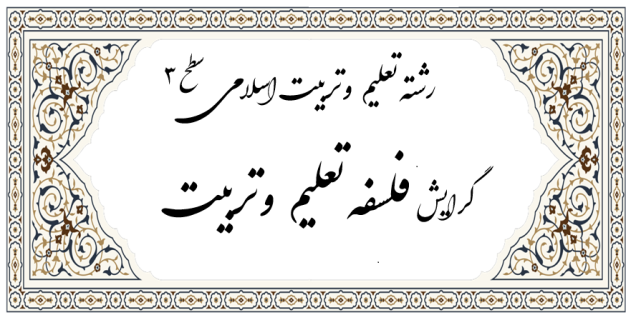 رشته تعلیم و تربیت اسلامی سطح ۳
گرایش فلسفه تعلیم و تربیت